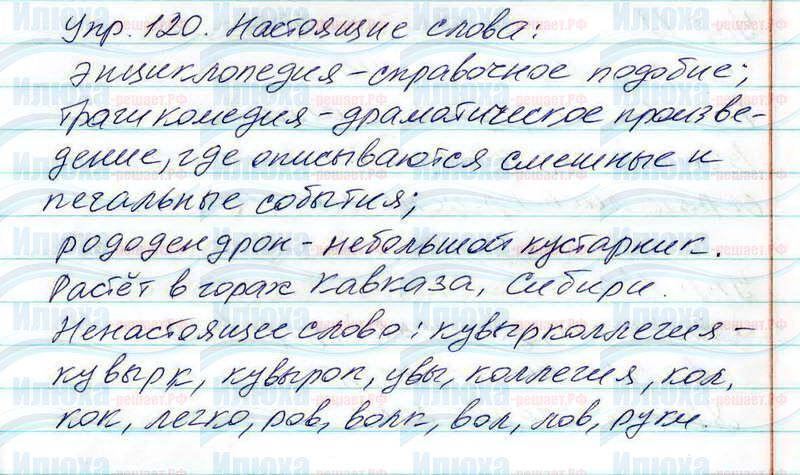 Упр. 120. Настоящие слова:
энциклопедия – справочное подобие;
трагикомедия – драматическое произве-
дение, где описываются смешные и
печальные события;
рододендрон – небольшой кустарник.
Растёт в горах Кавказа, Сибири.
Ненастоящее слово: кувырколлегия –
кувырк, кувырок, увы, коллегия, кол,
кок, легко, ров, волк, вол, лов, руки.